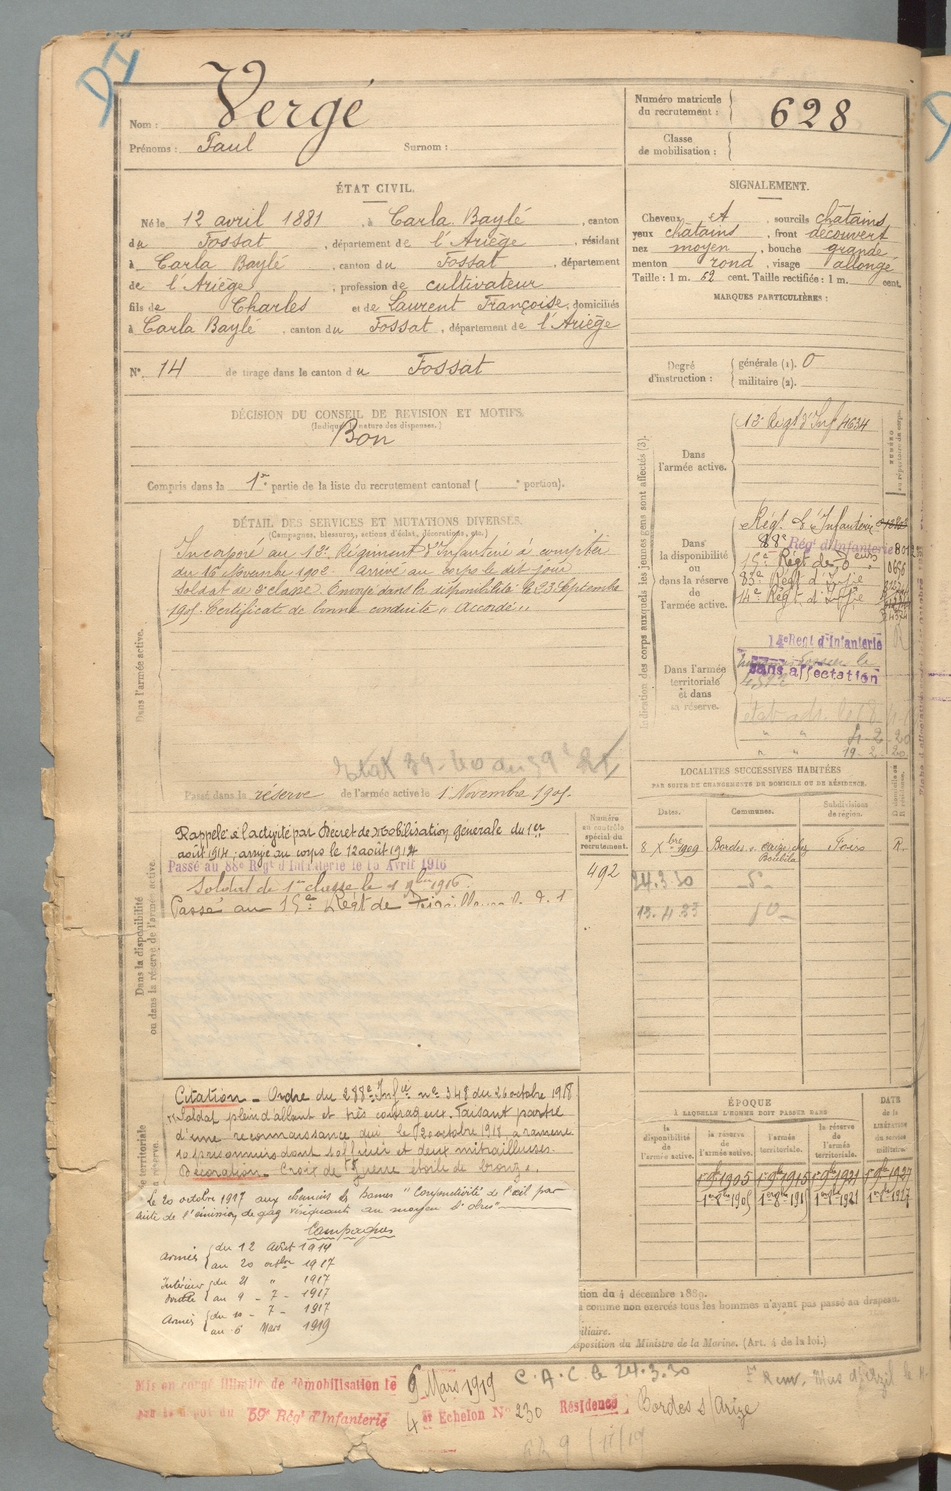 Nom : Vergé
Prénoms : Paul Surnom :
Numéro matricule du recrutement : 628
Classe de mobilisation :
ÉTAT CIVIL.
Né le 12 avril 1881, à Carla Baylé, canton
du Fossat, département de l'Ariège, résidant
à Carla Baylé, canton du Fossat, département
de l'Ariège, profession de cultivateur
fils de Charles et de Laurent Françoise, domiciliés
à Carla Baylé, canton du Fossat, département de l'Ariège
N° 14 de tirage dans le canton du Fossat
SIGNALEMENT.
Cheveux et, sourcils châtains
yeux châtains, front découvert
nez moyen, bouche grande
menton rond, visage allongé
Taille : 1 m. 52 cent. Taille rectifiée : 1 m. cent.
MARQUES PARTICULIÈRES :
Degré d'instruction : générale (1). 0
militaire (2).
DÉCISION DU CONSEIL DE REVISION ET MOTIFS.
(Indiquer la nature des dispenses.)
Bon
Compris dans la 1re partie de la liste du recrutement cantonal ( e portion).
DÉTAIL DES SERVICES ET MUTATIONS DIVERSES.
(Campagnes, blessures, actions d'éclat, décorations, etc.)
Incorporé au 12e Régiment d'Infanterie à compter
du 16 Novembre 1902. arrivé au corps le dit jour
Soldat de 2e classe. Envoyé dans la disponibilité le 23 Septembre
1905. Certificat de bonne conduite " Accordé "
Dans l'armée active.
Passé dans la réserve de l'armée active le 1 Novembre 1905.
Indication des corps auxquels les jeunes gens sont affectés (3).
Dans l'armée active.
Régt d'Inf 4634
Dans la disponibilité ou dans la réserve de l'armée active.
Régt d'Infanterie
88e Régt d'Infanterie
15e Régt de
83e Régt d'infie
14e Régt d'infie
Dans l'armée territoriale et dans sa réserve.
14e Régt d'Infanterie
sans affectation
19-2-20
LOCALITÉS SUCCESSIVES HABITÉES
PAR SUITE DE CHANGEMENTS DE DOMICILE OU DE RÉSIDENCE.
Dates. Communes. Subdivisions de région.
8 Xbre 1909 Bordes s. Arize Foix R.
24.3.30
13.4.33
Numéro au contrôle spécial du recrutement.
492
Dans la disponibilité ou dans la réserve de l'armée active
Rappelé à l'activité par Décret de Mobilisation générale du 1er
août 1914 ; arrivé au corps le 12 août 1914
Passé au 88e Régt d'Infanterie le 15 Avril 1916
Soldat de 1re classe le 1 9bre 1916.
Passé au 15e Régt de
Citation _ Ordre du 288e Infie n° 348 du 26 octobre 1918
"Soldat plein d'allant et très courageux. Faisant partie
d'une reconnaissance qui le 20 octobre 1918 a ramené
prisonniers dont officier et deux mitrailleuses.
Décoration _ Croix de guerre étoile de bronze.
le 20 octobre 1917 aux chemin des Dames " Conjonctivité de l'œil par
suite de l'émission de gaz vésiquants au moyen d'obus"
Campagnes
Armées du 12 Août 1914
au 20 octobre 1917
Intérieur du 21 " 1917
au 9 - 7 - 1917
Armées du 10 - 7 - 1917
au 6 Mars 1919
ÉPOQUE
À LAQUELLE L'HOMME DOIT PASSER DANS
la disponibilité de l'armée active.
la réserve de l'armée active.
l'armée territoriale.
la réserve de l'armée territoriale.
DATE de la LIBÉRATION du service militaire.
1er 9bre 1905 1er 9bre 1915 1er 9bre 1921 1er 9bre 1927
tion du 4 décembre 1889.
comme non exercés tous les hommes n'ayant pas passé au drapeau
biliaire.
disposition du Ministre de la Marine. (Art. 4 de la loi.)
Mis en congé illimité de démobilisation le 6 Mars 1919
par le dépot du 59e Régt d'Infanterie
4e Echelon N° 230 Résidence : Bordes s/Arize
C.A.C. le 24.3.30